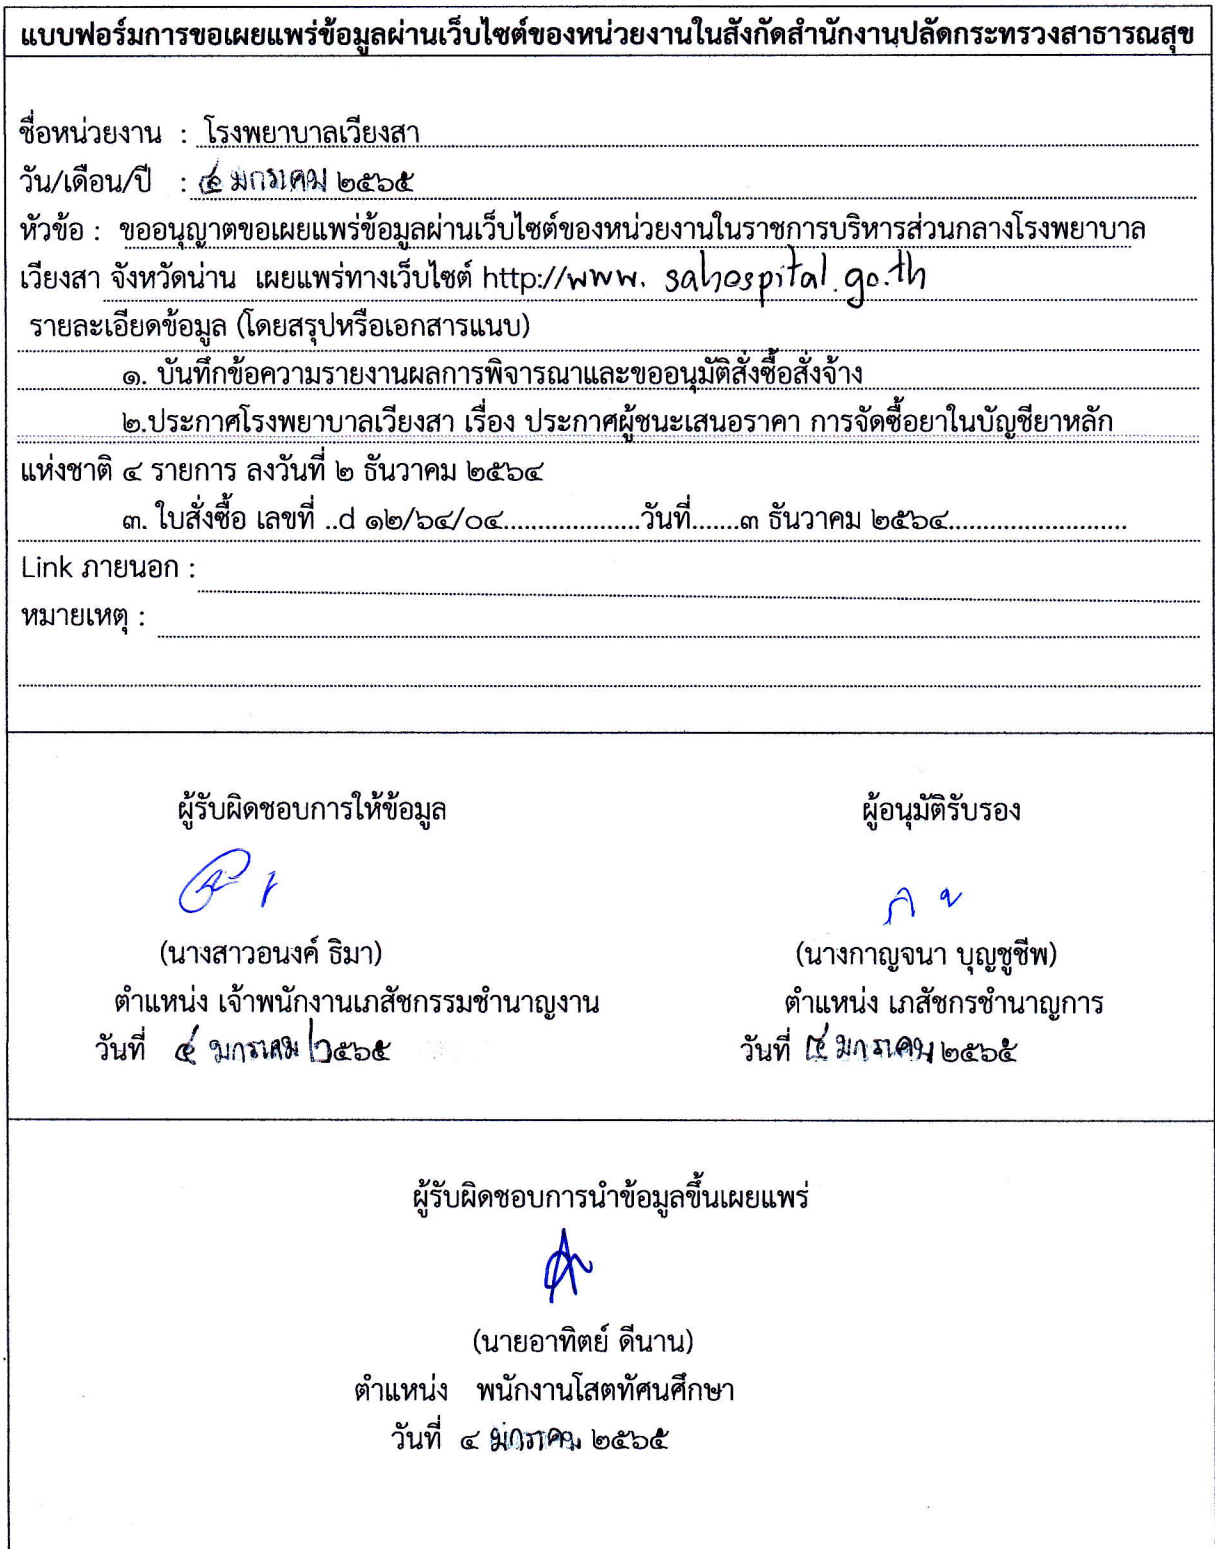 แบบฟอร์มการขอเผยแพร่ข้อมูลผ่านเว็บไซต์ของหน่วยงานในสังกัดสำนักงานปลัดกระทรวงสาธารณสุข
ชื่อหน่วยงาน : โรงพยาบาลเวียงสา
วัน/เดือน/ปี : ๔ มกราคม ๒๕๖๕
หัวข้อ : ขออนุญาตขอเผยแพร่ข้อมูลผ่านเว็บไซต์ของหน่วยงานในราชการบริหารส่วนกลางโรงพยาบาล
เวียงสา จังหวัดน่าน เผยแพร่ทางเว็บไซต์ http://www. sahospital.go.th
รายละเอียดข้อมูล (โดยสรุปหรือเอกสารแนบ)
๑. บันทึกข้อความรายงานผลการพิจารณาและขออนุมัติสั่งซื้อสั่งจ้าง
๒.ประกาศโรงพยาบาลเวียงสา เรื่อง ประกาศผู้ชนะเสนอราคา การจัดซื้อยาในบัญชียาหลัก
แห่งชาติ ๔ รายการ ลงวันที่ ๒ ธันวาคม ๒๕๖๔
๓. ใบสั่งซื้อ เลขที่ ..d ๑๒/๖๔/๐๔....................วันที่.......๓ ธันวาคม ๒๕๖๔..........................
Link ภายนอก :
หมายเหตุ :
ผู้รับผิดชอบการให้ข้อมูล
ผู้อนุมัติรับรอง
(นางสาวอนงค์ ธิมา)
(นางกาญจนา บุญชูชีพ)
ตำแหน่ง เจ้าพนักงานเภสัชกรรมชำนาญงาน
ตำแหน่ง เภสัชกรชำนาญการ
วันที่ ๔ มกราคม ๒๕๖๕
วันที่ ๔ มกราคม ๒๕๖๕
ผู้รับผิดชอบการนำข้อมูลขึ้นเผยแพร่
(นายอาทิตย์ ดีนาน)
ตำแหน่ง พนักงานโสตทัศนศึกษา
วันที่ ๔ มกราคม ๒๕๖๕